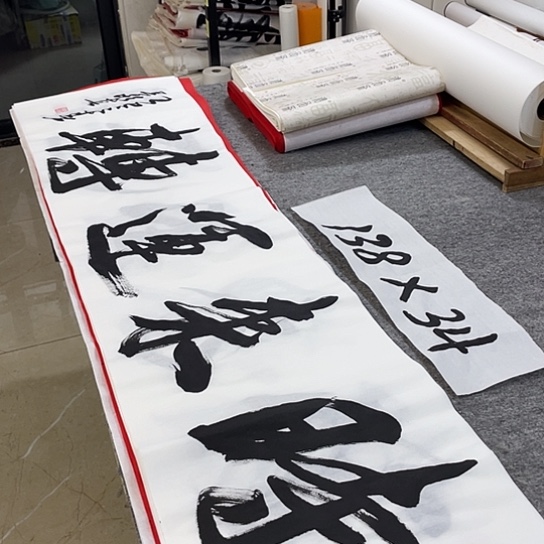 時来運轉
138 x 34